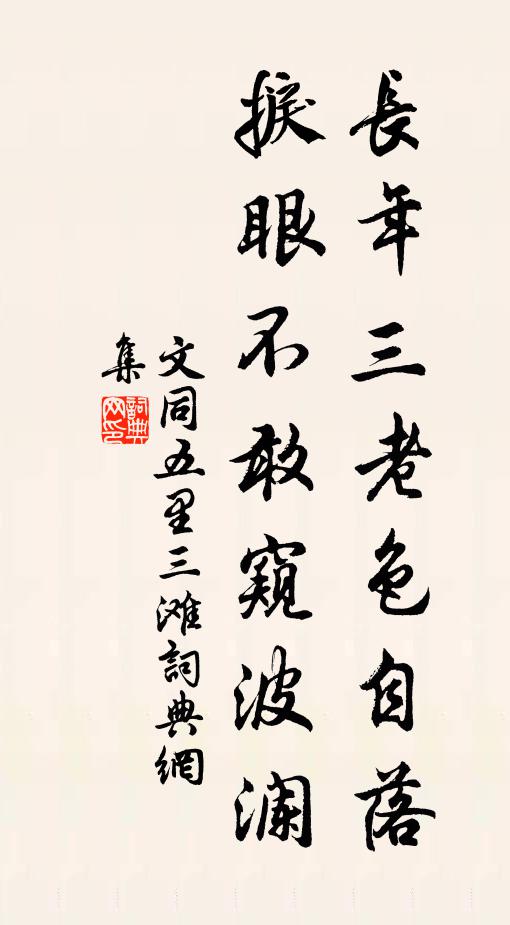 長年三老色自落
捩眼不敢窺波瀾
文同五里三滩詞典網
集
詞典网印